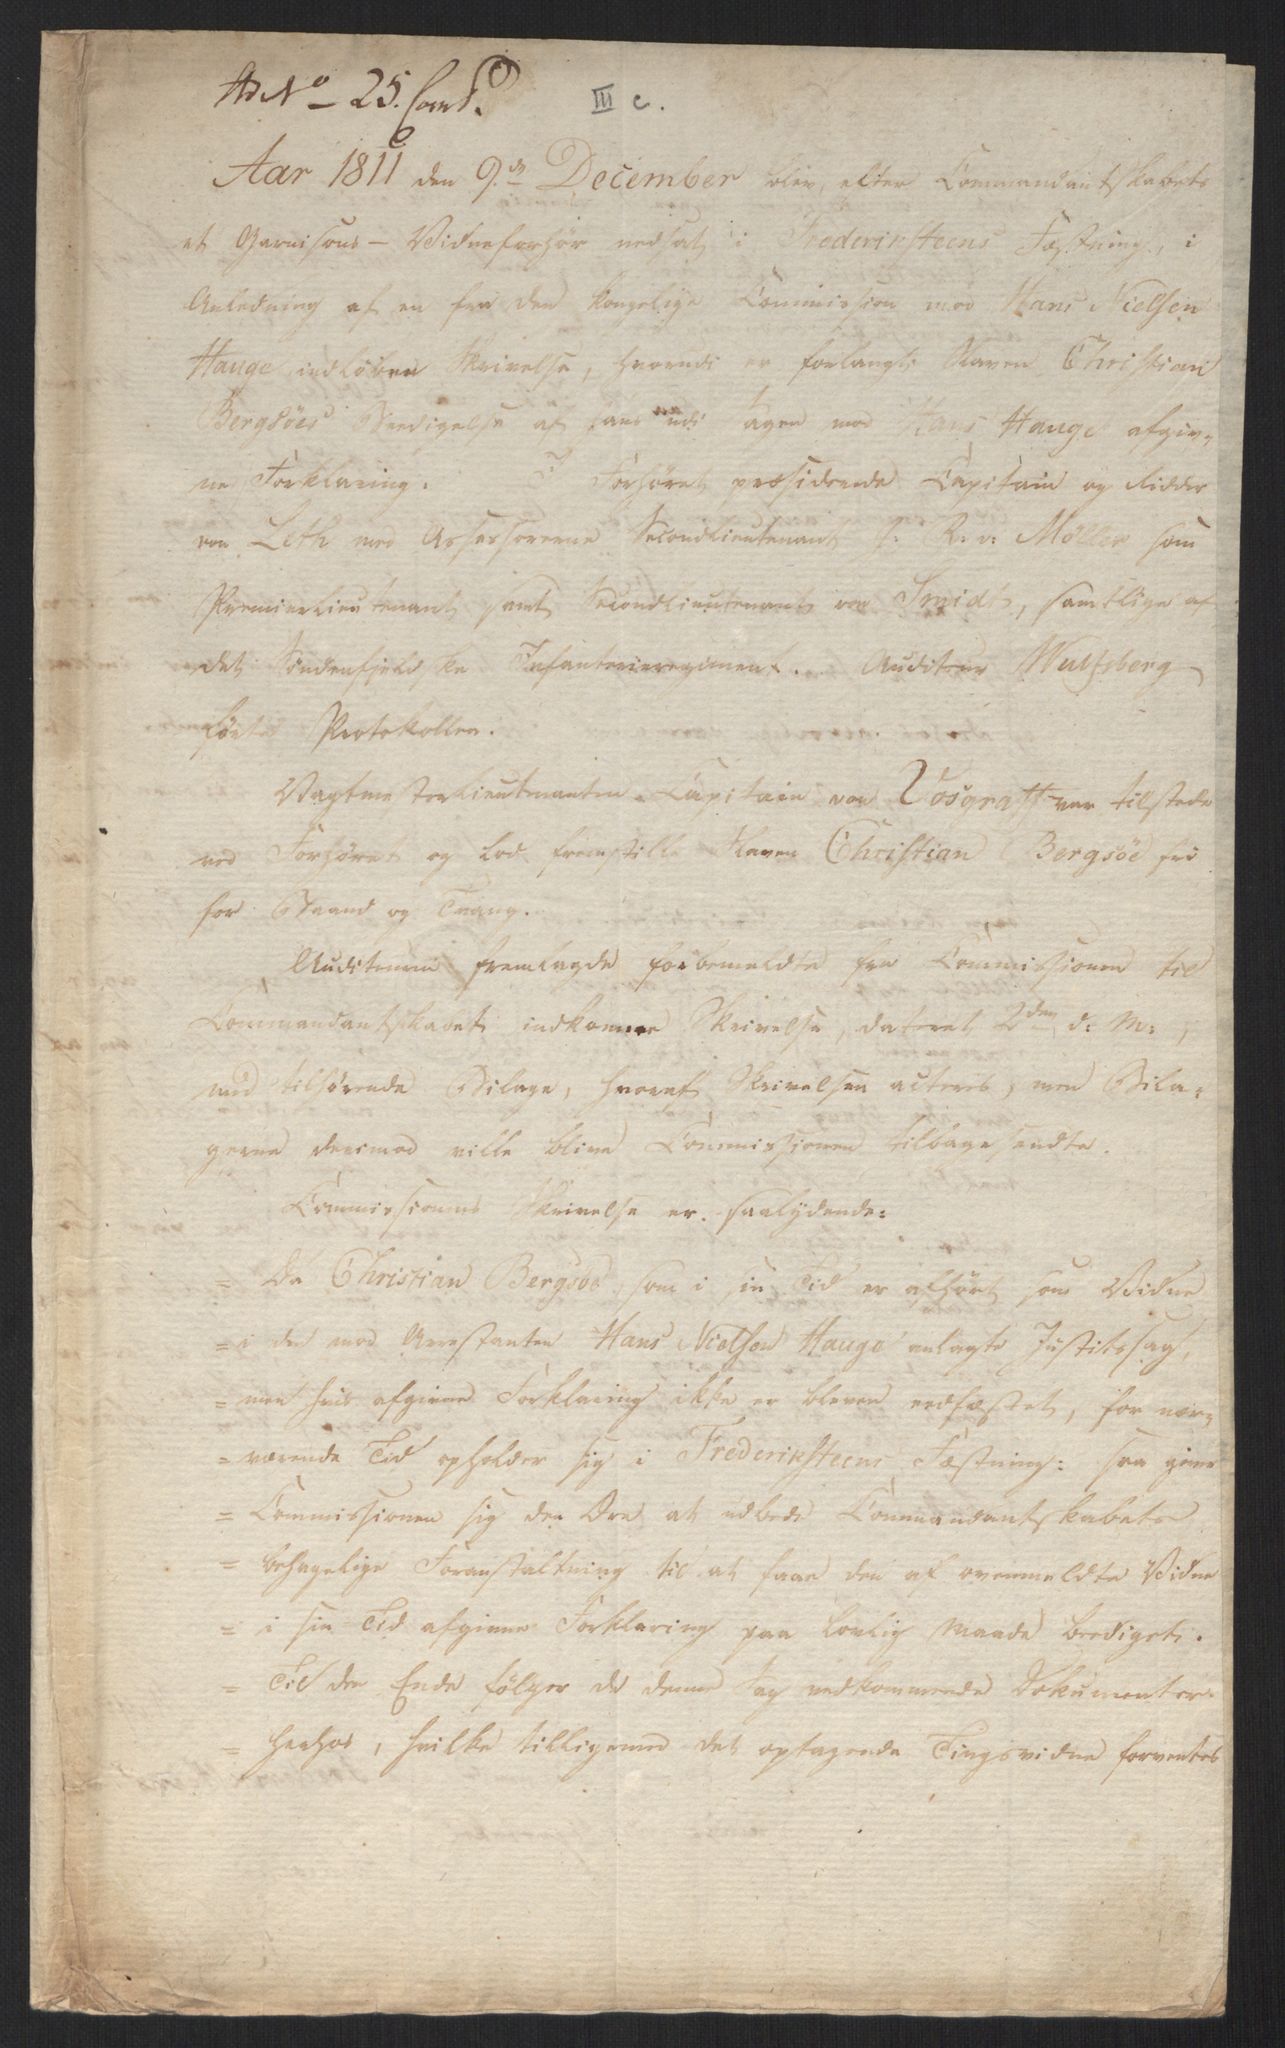 Ad No 25. Cont.
III c.
Aar 1811 den 9de December blev, efter Commandantskabets
et Garnisons-Vidneforhør nedsat i Frederiksteens Fæstning, i
Anledning af en fra den kongelige Commission mod Hans Nielsen
Hauge indløben Skrivelse, hvorudi er forlangt Slaven Christian
Bergsöes Beedigelse af hans udi Sagen mod Hans Hauge afgiv=
ne Forklaring. I Forhøret præsiderede Capitain og Ridder
von Leth med Assessorerne Secondlieutenant J: R: v: Möller som
Premierlieutenant samt Secondlieutenant von Smidt, samtlige af
det Søndenfjeldske Infanterieregiment. Auditeur Wulfsberg
førte Protokollen.
Vagtmesterlieutenanten Capitain von Vosgraff var tilstede
ved Forhøret og lod fremstille Slaven Christian Bergsöe fri
for Baand og Tvang.
Auditeuren fremlagde forbemeldte fra Commissionen til
Commandantskabet indkomne Skrivelse, dateret 2den d: M:,
med tilhørende Bilage, hvoraf Skrivelsen acteres, men Bila=
gerne derimod ville blive Commissionen tilbagesendte.
Commissionens Skrivelse er saalydende:
= Da Christian Bergsöe som i sin Tid er afhørt som Vidne
= i den mod Arrestanten Hans Nielsen Hauge anlagte Justitssag,
= men hvis afgivne Forklaring ikke er bleven eedfæstet, for nær=
= værende Tid opholder sig i Frederiksteens Fæstning: saa giver
= Commissionen sig den Ære at udbede Commandantskabets
= behagelige Foranstaltning til at faae den af ovenmeldte Vidne
= i sin Tid afgivne Forklaring paa lovlig Maade beediget.
= Til den Ende følger de denne Sag vedkommende Dokumenter
= herhos, hvilke tilligemed det optagende Tingsvidne forventes